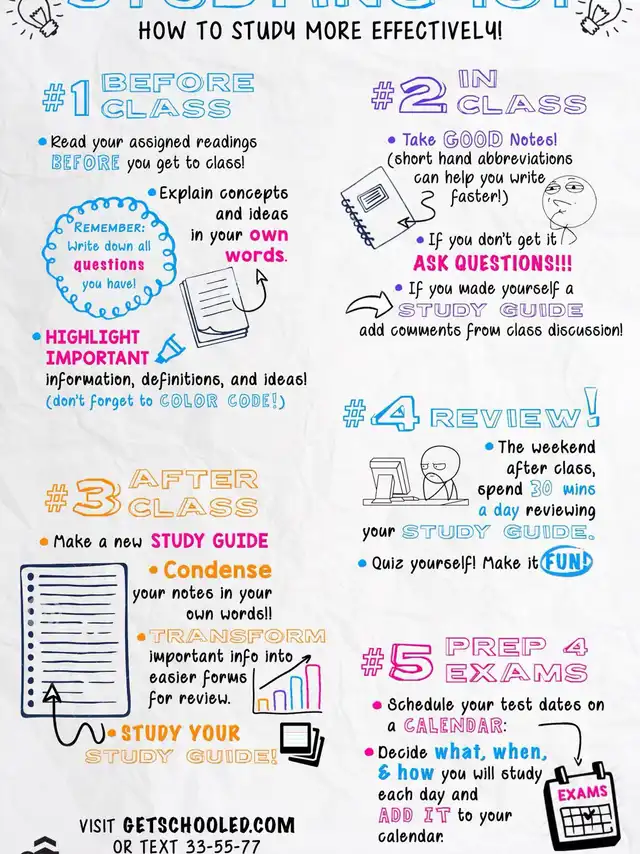 STUDYING 101
HOW TO STUDY MORE EFFECTIVELY!
#1 BEFORE
CLASS
• Read your assigned readings
BEFORE you get to class!
• Explain concepts
and ideas
in your own
words.
REMEMBER:
Write down all
questions
you have!
• HIGHLIGHT
IMPORTANT
information, definitions, and ideas!
(don't forget to COLOR CODE!)
#2 IN
CLASS
• Take GOOD Notes!
(short hand abbreviations
can help you write
faster!)
• If you don't get it
ASK QUESTIONS!!!
• If you made yourself a
STUDY GUIDE
add comments from class discussion!
#3 AFTER
CLASS
• Make a new STUDY GUIDE
• Condense
your notes in your
own words!!
• TRANSFORM
important info into
easier forms
for review.
• STUDY YOUR
STUDY GUIDE!
#4 REVIEW!
• The weekend
after class,
spend 30 mins
a day reviewing
your STUDY GUIDE.
• Quiz yourself! Make it FUN!
#5 PREP 4
EXAMS
• Schedule your test dates on
a CALENDAR:
• Decide what, when,
& how you will study
each day and
ADD IT to your
calendar.
EXAMS
VISIT GETSCHOOLED.COM
OR TEXT 33-55-77